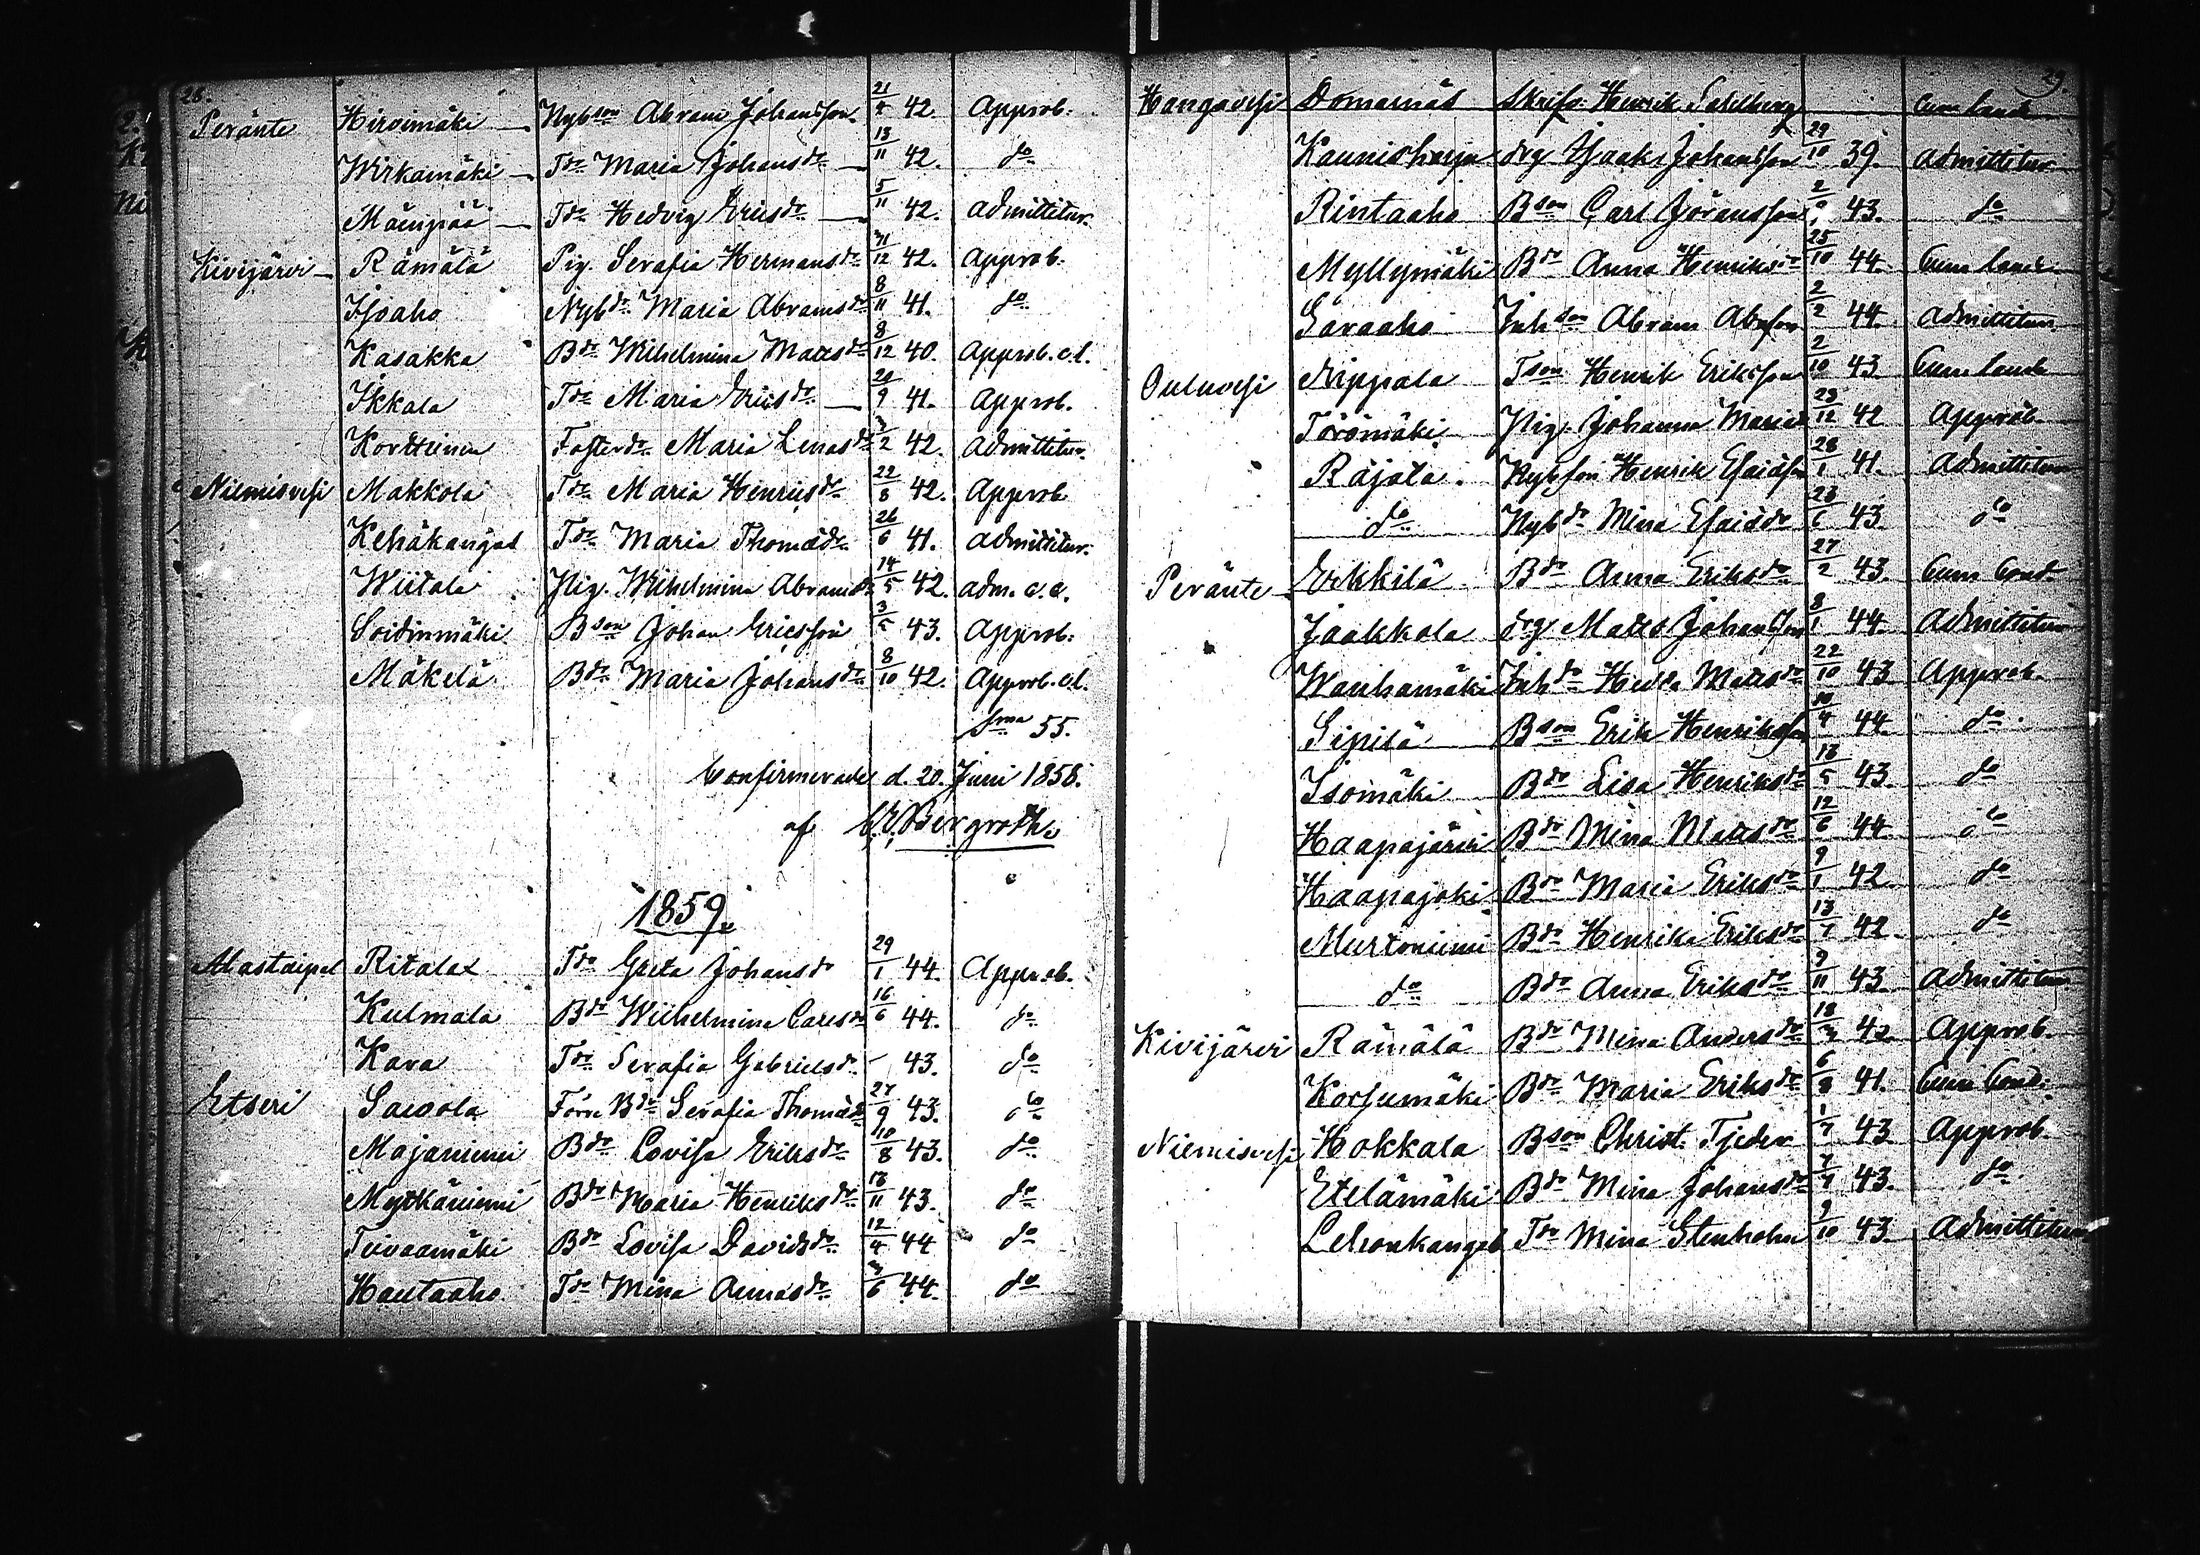 28.
Peränte Hirvimäki Nybson Abram Johansson 21/4 42. Approb.
Wirkamäki Tdr Maria Johansdr 13/11 42. do
Mäenpää Tdr Hedvig Ericsdr 5/11 42. admittitur.
Kivijärvi Rämälä Pig. Serafia Hermansdr 31/12 42. Approb.
Isoaho Nybdr Maria Abramsdr 8/11 41. do
Kasakka Bdr Wilhelmina Mattsdr 8/12 40. Approb. c.l.
Ikkala Tdr Maria Ericsdr 20/9 41. Approb.
Korttinen Fosterdr Maria Lenasdr 2 42. admittitur.
Niemisvesi Makkola Tdr Maria Henricsdr 22/8 42. Approb
Kehäkangas Tdr Maria Thomædr 26/6 41. admittitur.
Wiitala Pig. Wilhelmina Abramsdr 14/5 42. adm. c.c.
Soidinmäki Bson Johan Ericsson 3/5 43. Approb.
Mäkelä Bdr Maria Johansdr 8/10 42. Approb. c.l.
Sma 55.
Confirmerade d. 20. Juni 1858.
af Bergroth.
1859.
Alastaipal Ritala Tdr Greta Johansdr 29/1 44. Approb.
Kulmala Bdr Wilhelmina Carlsdr 16/6 44. do
Kara Tdr Serafia Gabrielsdr 43. do
Etseri Sawola Förre Bdr Serafia Thomædr 27/9 43. do
Majaniemi Bdr Lovisa Eriksdr 10/8 43. do
Mytkäniemi Bdr Maria Henriksdr 18/11 43. do
Teivaamäki Bdr Lovisa Davidsdr 12/4 44 do
Hautaaho Tdr Mina Annasdr 6 44. do
29.
Hangavesi Domarnäs Skrifv. Henrik Sahlberg Cum laude
Kaunisharju drg Isaak Johansson 29/10 39. admittitur
Rintaaho Bson Carl Jöransson 2 43. do
Myllymäki Bdr Anna Henriksdr 25/10 44. Cum laude
Saraaho Inhson Abram Abrsson 2/2 44. Admittitur
Ouluvesi Nippala Tson Henrik Eriksson 2/10 43 Cum laude
Törömäki Pig. Johanna Mariadr 23/12 42 Approb.
Rajala Nybson Henrik Esaiasson 28/1 41. Admittitur
do Nybdr Mina Esaiædr 23/6 43. do
Peränte Erkkilä Bdr Anna Eriksdr 27/2 43. Cum Cond.
Jaakkola drg Matts Johansson 8/1 44. Admittitur
Wanhamäki Inhdr Hedda Mattsdr 22/10 43 Approb.
Sipilä Bson Erik Henriksson 10/4 44. do
Isomäki Bdr Lisa Henriksdr 18/5 43. do
Haapajärvi Bdr Mina Mattsdr 12/6 44 do
Haapajoki Bdr Maria Eriksdr 9/1 42 do
Murtoniemi Bdr Henrika Eriksdr 13 42 do
do Bdr Anna Eriksdr 9/11 43. Admittitur
Kivijärvi Rämälä Bdr Mina Andersdr 18 42 Approb.
Korsumäki Bdr Maria Eriksdr 6/8 41. Cum Cond.
Niemisvesi Hokkala Bson Christ. Tjeder 1/7 43 Approb.
Etelämäki Bdr Mina Johansdr 7 43. do
Lehonkangas Tdr Mina Stenholm 9/10 43 Admittitur